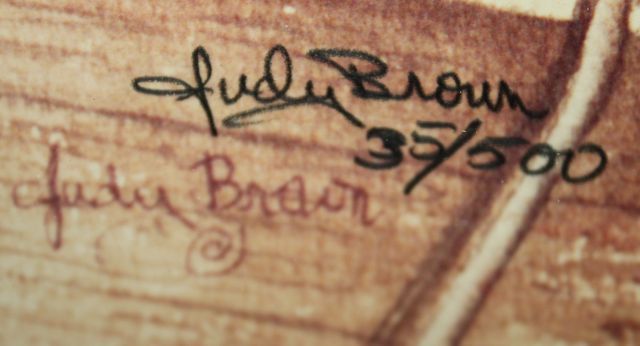 Judy Brown
35/500
Judy Brown